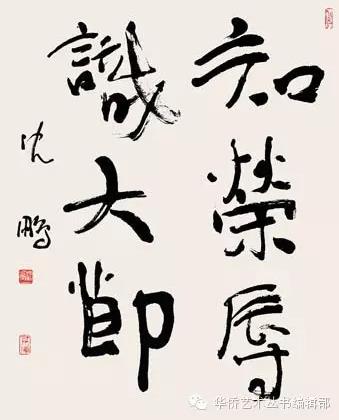 知榮辱
識大節
沈鵬
华侨艺术丛书编辑部